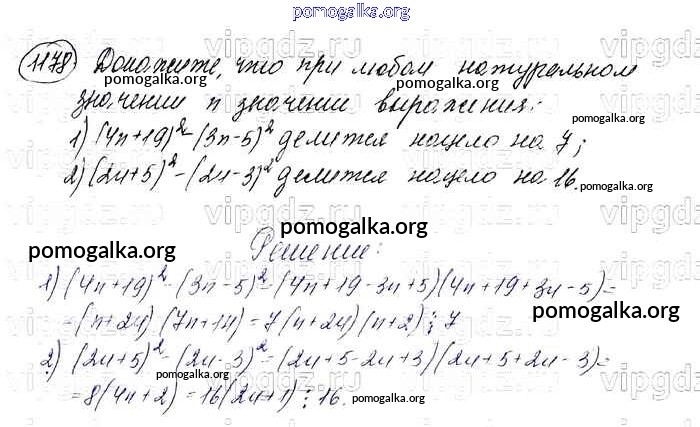 pomogalka.org
1178. Докажите, что при любом натуральном
значении n значении выражения:
1) (4n+19)² - (3n-5)² делится нацело на 7;
2) (2n+5)² - (2n-3)² делится нацело на 16.
Решение:
1) (4n+19)² - (3n-5)² = (4n+19-3n+5)(4n+19+3n-5)=
=(n+24)(7n+14)=7(n+24)(n+2)⋮7
2) (2n+5)² - (2n-3)² = (2n+5-2n+3)(2n+5+2n-3)=
=8(4n+2)=16(2n+1)⋮16.
pomogalka.org
pomogalka.org
pomogalka.org
pomogalka.org
pomogalka.org
pomogalka.org
pomogalka.org
pomogalka.org
vipgdz.ru